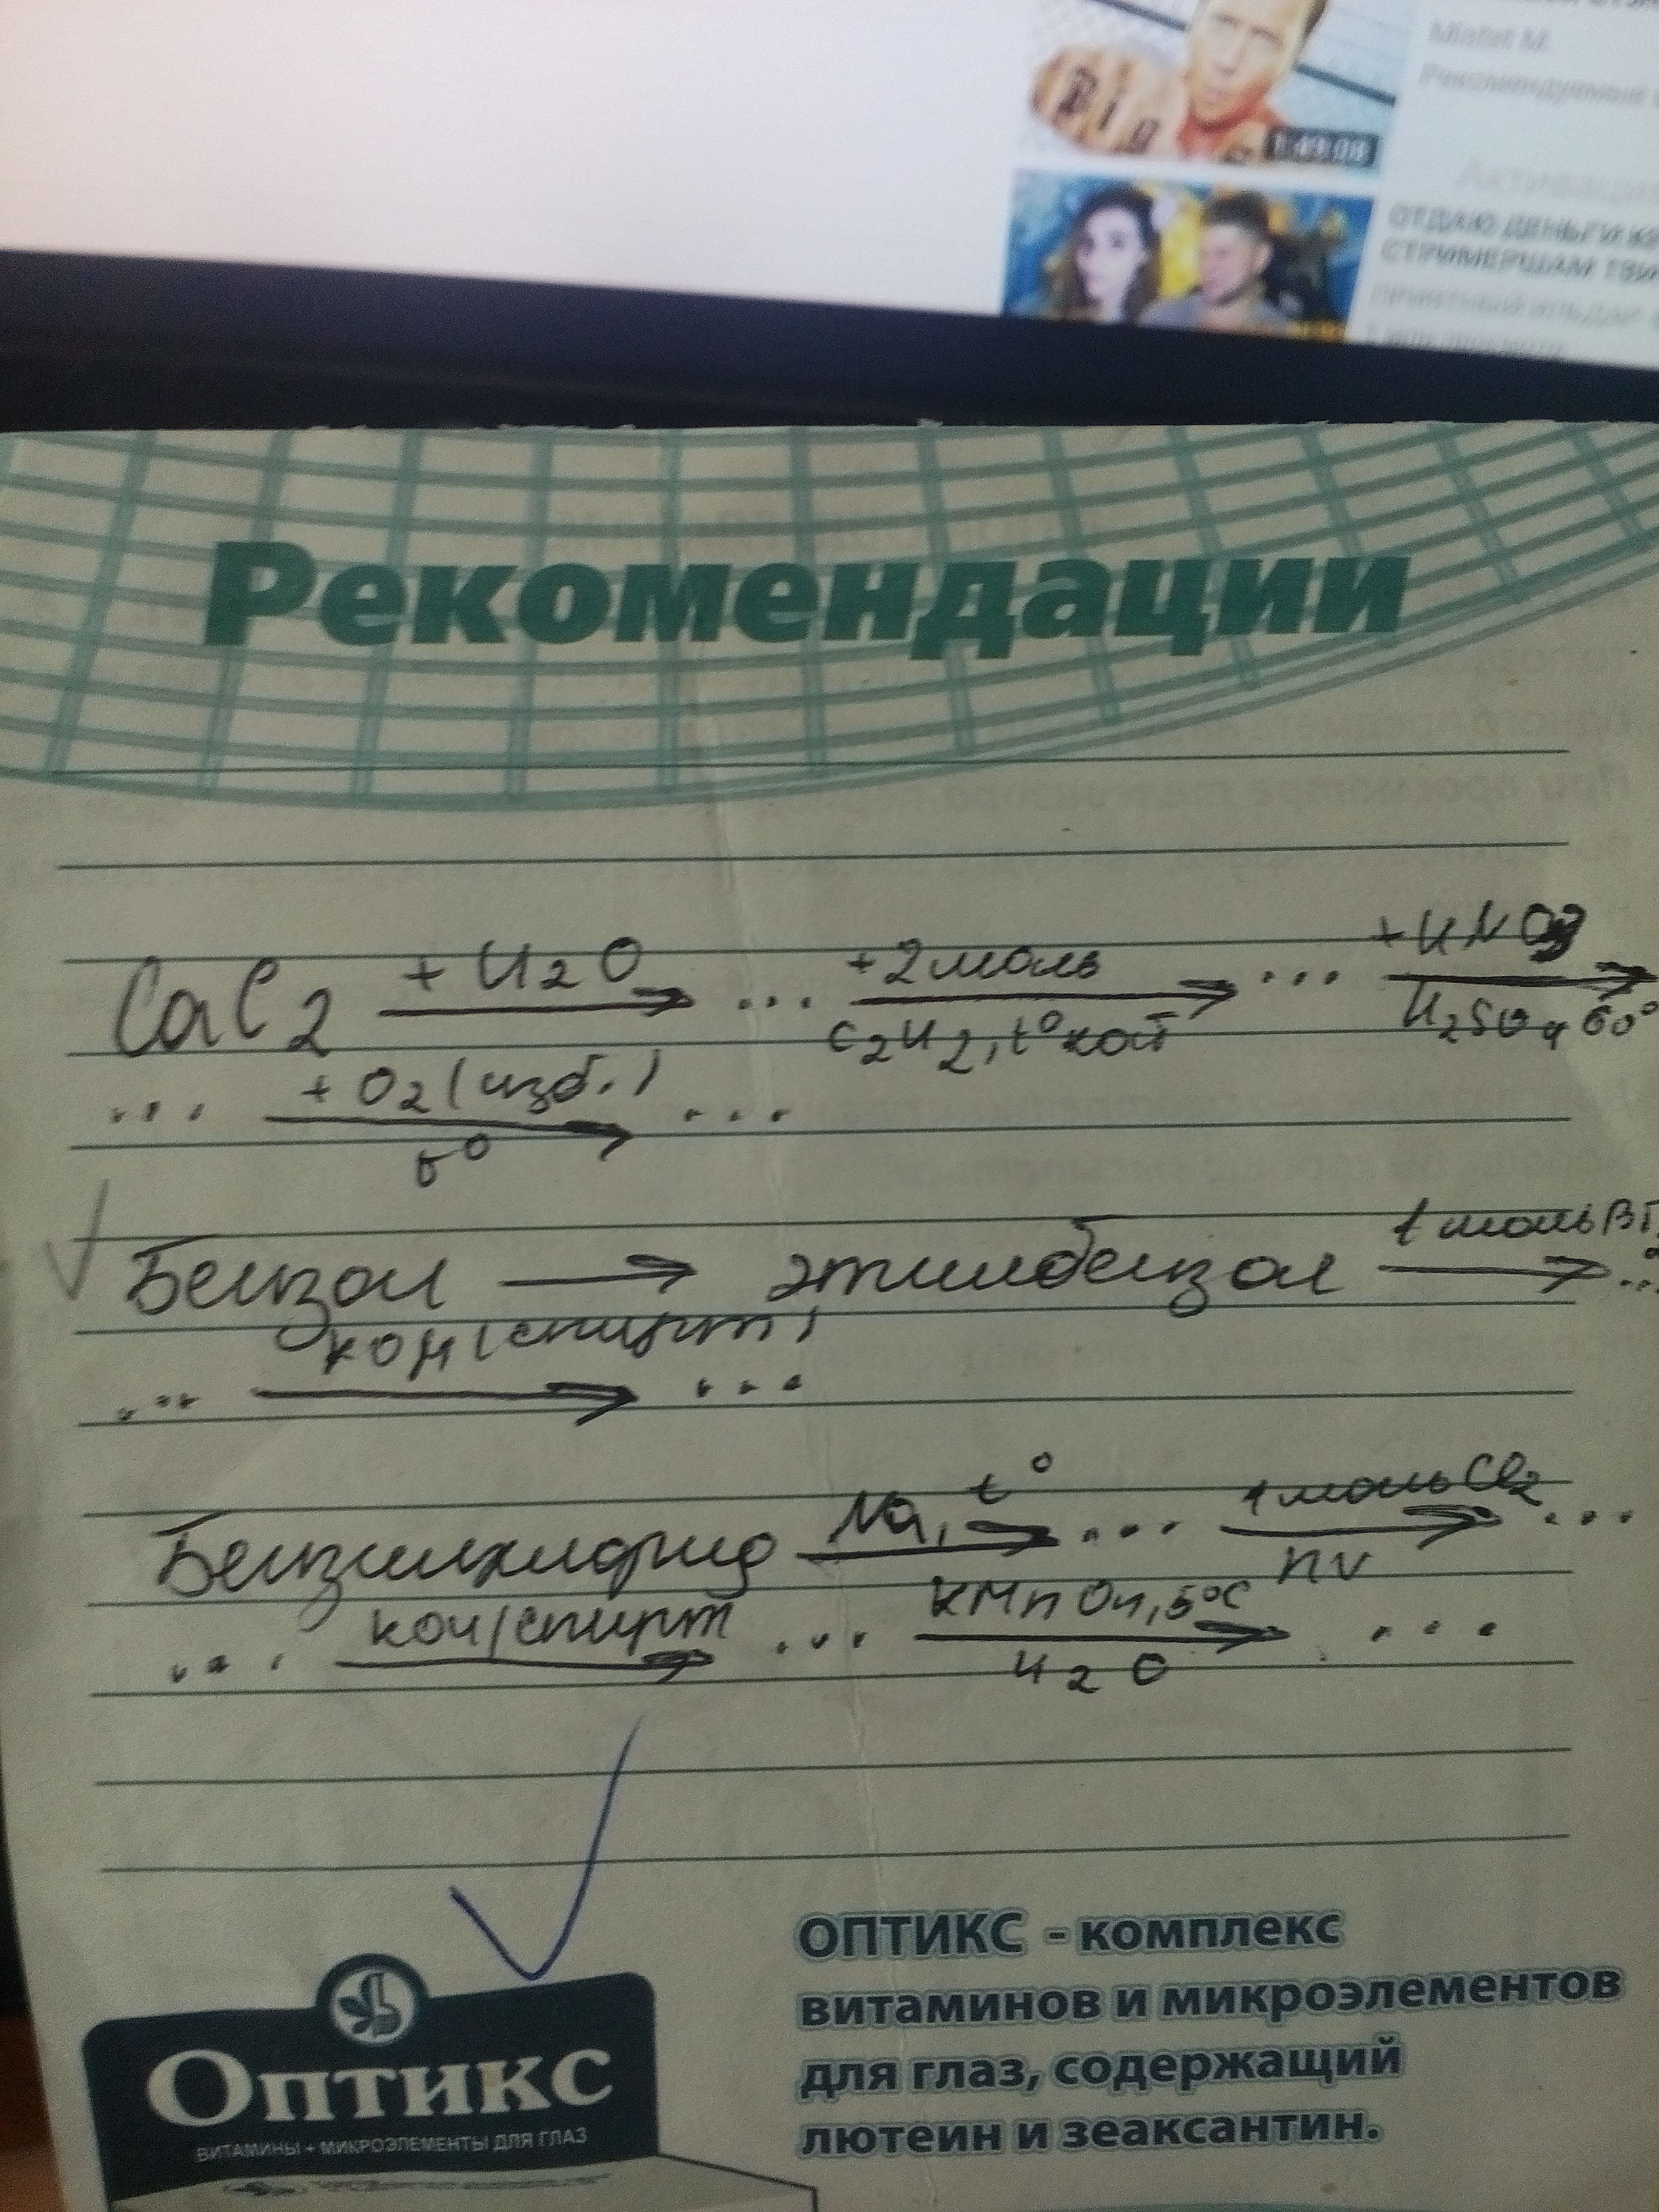 Big
1:49:08
Mister M.
Рекомендуемые
Активация
ОТДАЮ ДЕНЬГИ
СТРИМЕРШАМ ТВИ
Рекомендации
CaC2 + H2O → ... +2моль C2H2, t° кат → ... + HNO3 H2SO4 60° →
... + O2 (изб.) t° → ...
Бензол → этилбензол 1 моль Br2 → ...
... КОН (спирт) → ...
Бензилхлорид Na, t° → ... 1 моль Cl2 hν → ...
... КОН/спирт → ... KMnO4, 5°C H2O → ...
ОПТИКС - комплекс
витаминов и микроэлементов
для глаз, содержащий
лютеин и зеаксантин.
Оптикс
ВИТАМИНЫ + МИКРОЭЛЕМЕНТЫ ДЛЯ ГЛАЗ